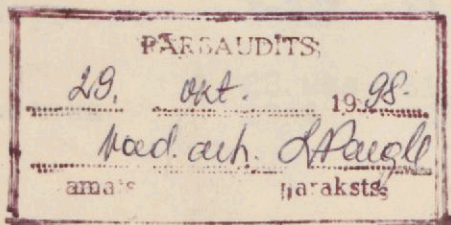 PĀRBAUDĪTS:
29. okt. 1998.
vad. arh. 
amats paraksts